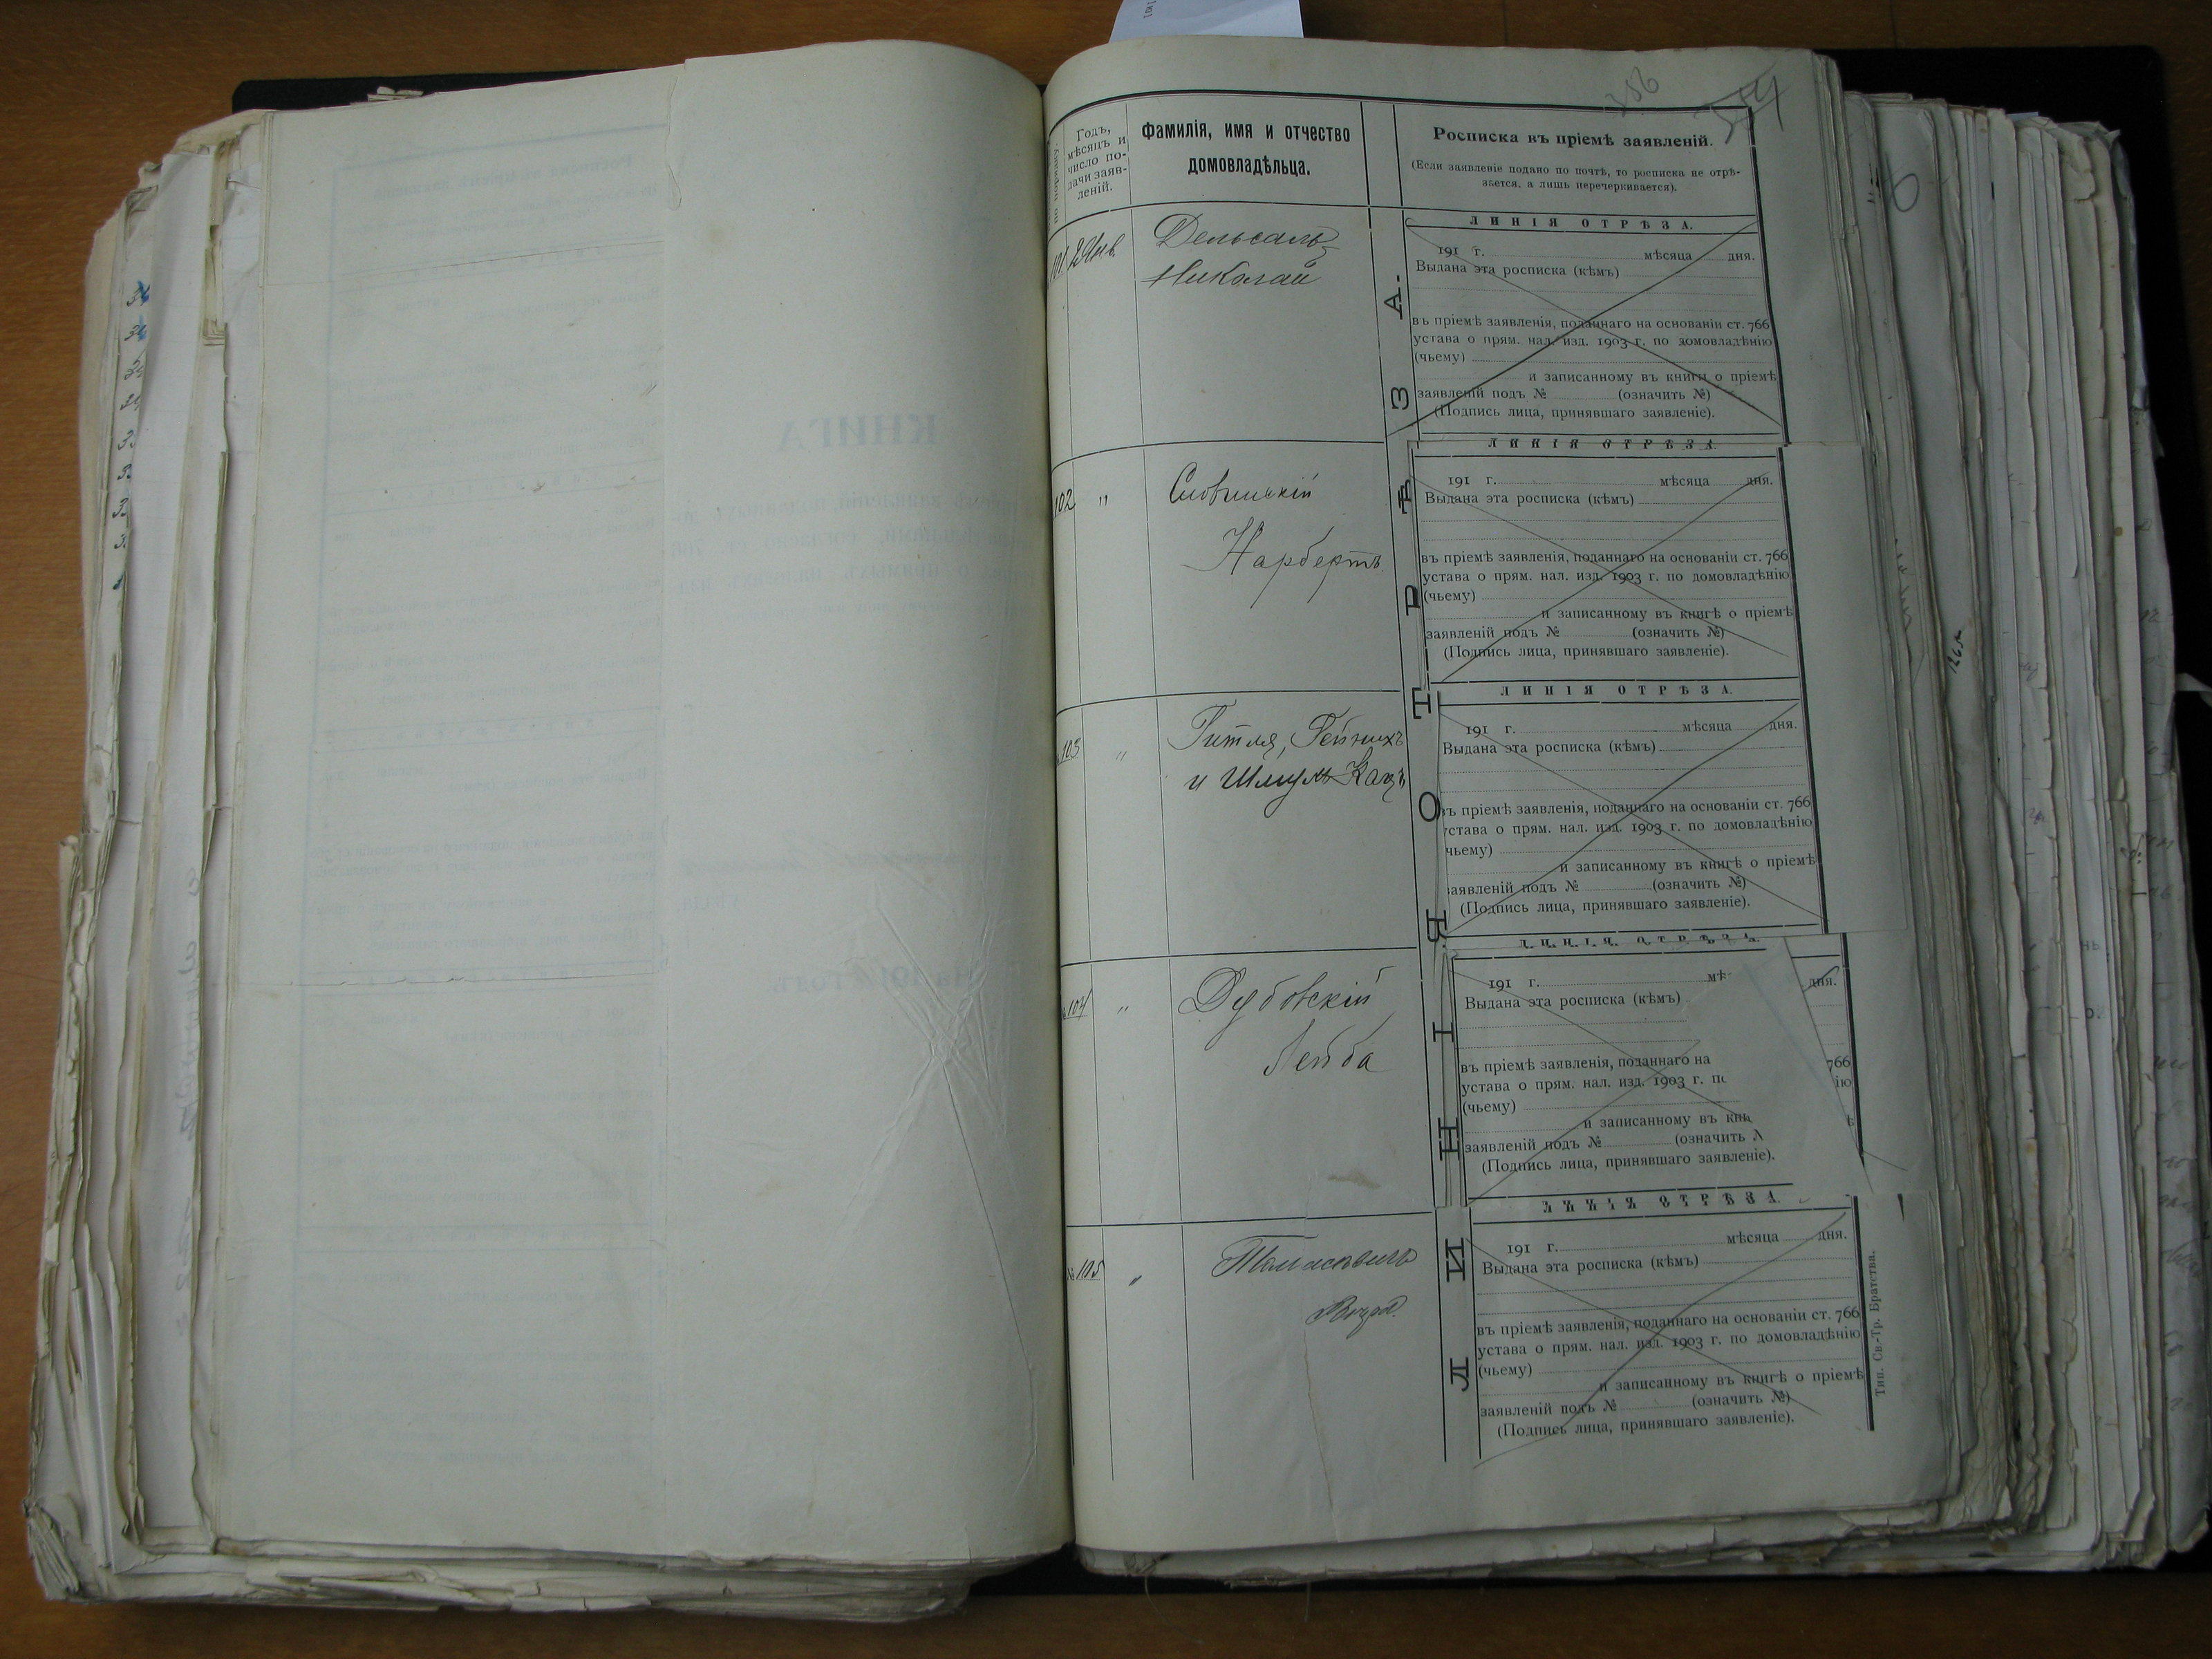 356
по порядку.
Годъ,
мѣсяцъ и
число по-
дачи заяв-
леній.
Фамилія, имя и отчество
домовладѣльца.
Росписка въ пріемѣ заявленій.
(Если заявленіе подано по почтѣ, то росписка не отрѣ-
зается, а лишь перечеркивается).
ЛИНІЯ ОТРѢЗА.
101
2 Янв.
Дельсаль
Николай
191 г. мѣсяца дня.
Выдана эта росписка (кѣмъ)
въ пріемѣ заявленія, поданнаго на основаніи ст. 766
устава о прям. нал. изд. 1903 г. по домовладѣнію
(чьему)
и записанному въ книгѣ о пріемѣ
заявленій подъ № (означить №)
(Подпись лица, принявшаго заявленіе).
ЛИНІЯ ОТРѢЗА.
102 "
Нарбертъ
191 г. мѣсяца дня.
Выдана эта росписка (кѣмъ)
въ пріемѣ заявленія, поданнаго на основаніи ст. 766
устава о прям. нал. изд. 1903 г. по домовладѣнію
(чьему)
и записанному въ книгѣ о пріемѣ
заявленій подъ № (означить №)
(Подпись лица, принявшаго заявленіе).
ЛИНІЯ ОТРѢЗА.
103 "
Гитля, Гейнихъ
и Шлиумъ Кацъ
191 г. мѣсяца дня.
Выдана эта росписка (кѣмъ)
въ пріемѣ заявленія, поданнаго на основаніи ст. 766
устава о прям. нал. изд. 1903 г. по домовладѣнію
чьему)
и записанному въ книгѣ о пріемѣ
заявленій подъ № (означить №)
(Подпись лица, принявшаго заявленіе).
ЛИНІЯ ОТРѢЗА.
104 "
Дубовскій
Лейба
191 г. мѣ дня.
Выдана эта росписка (кѣмъ)
въ пріемѣ заявленія, поданнаго на 766
устава о прям. нал. изд. 1903 г. по ію
(чьему)
и записанному въ кни ѣ
заявленій подъ № (означить №
(Подпись лица, принявшаго заявленіе).
ЛИНІЯ ОТРѢЗА.
№ 105 "
191 г. мѣсяца дня.
Выдана эта росписка (кѣмъ)
въ пріемѣ заявленія, поданнаго на основаніи ст. 766
устава о прям. нал. изд. 1903 г. по домовладѣнію
(чьему)
и записанному въ книгѣ о пріемѣ
заявленій подъ № (означить №)
(Подпись лица, принявшаго заявленіе).
ЛИНІЯ ОТРѢЗА.
Тип. Св.-Тр. Братства.